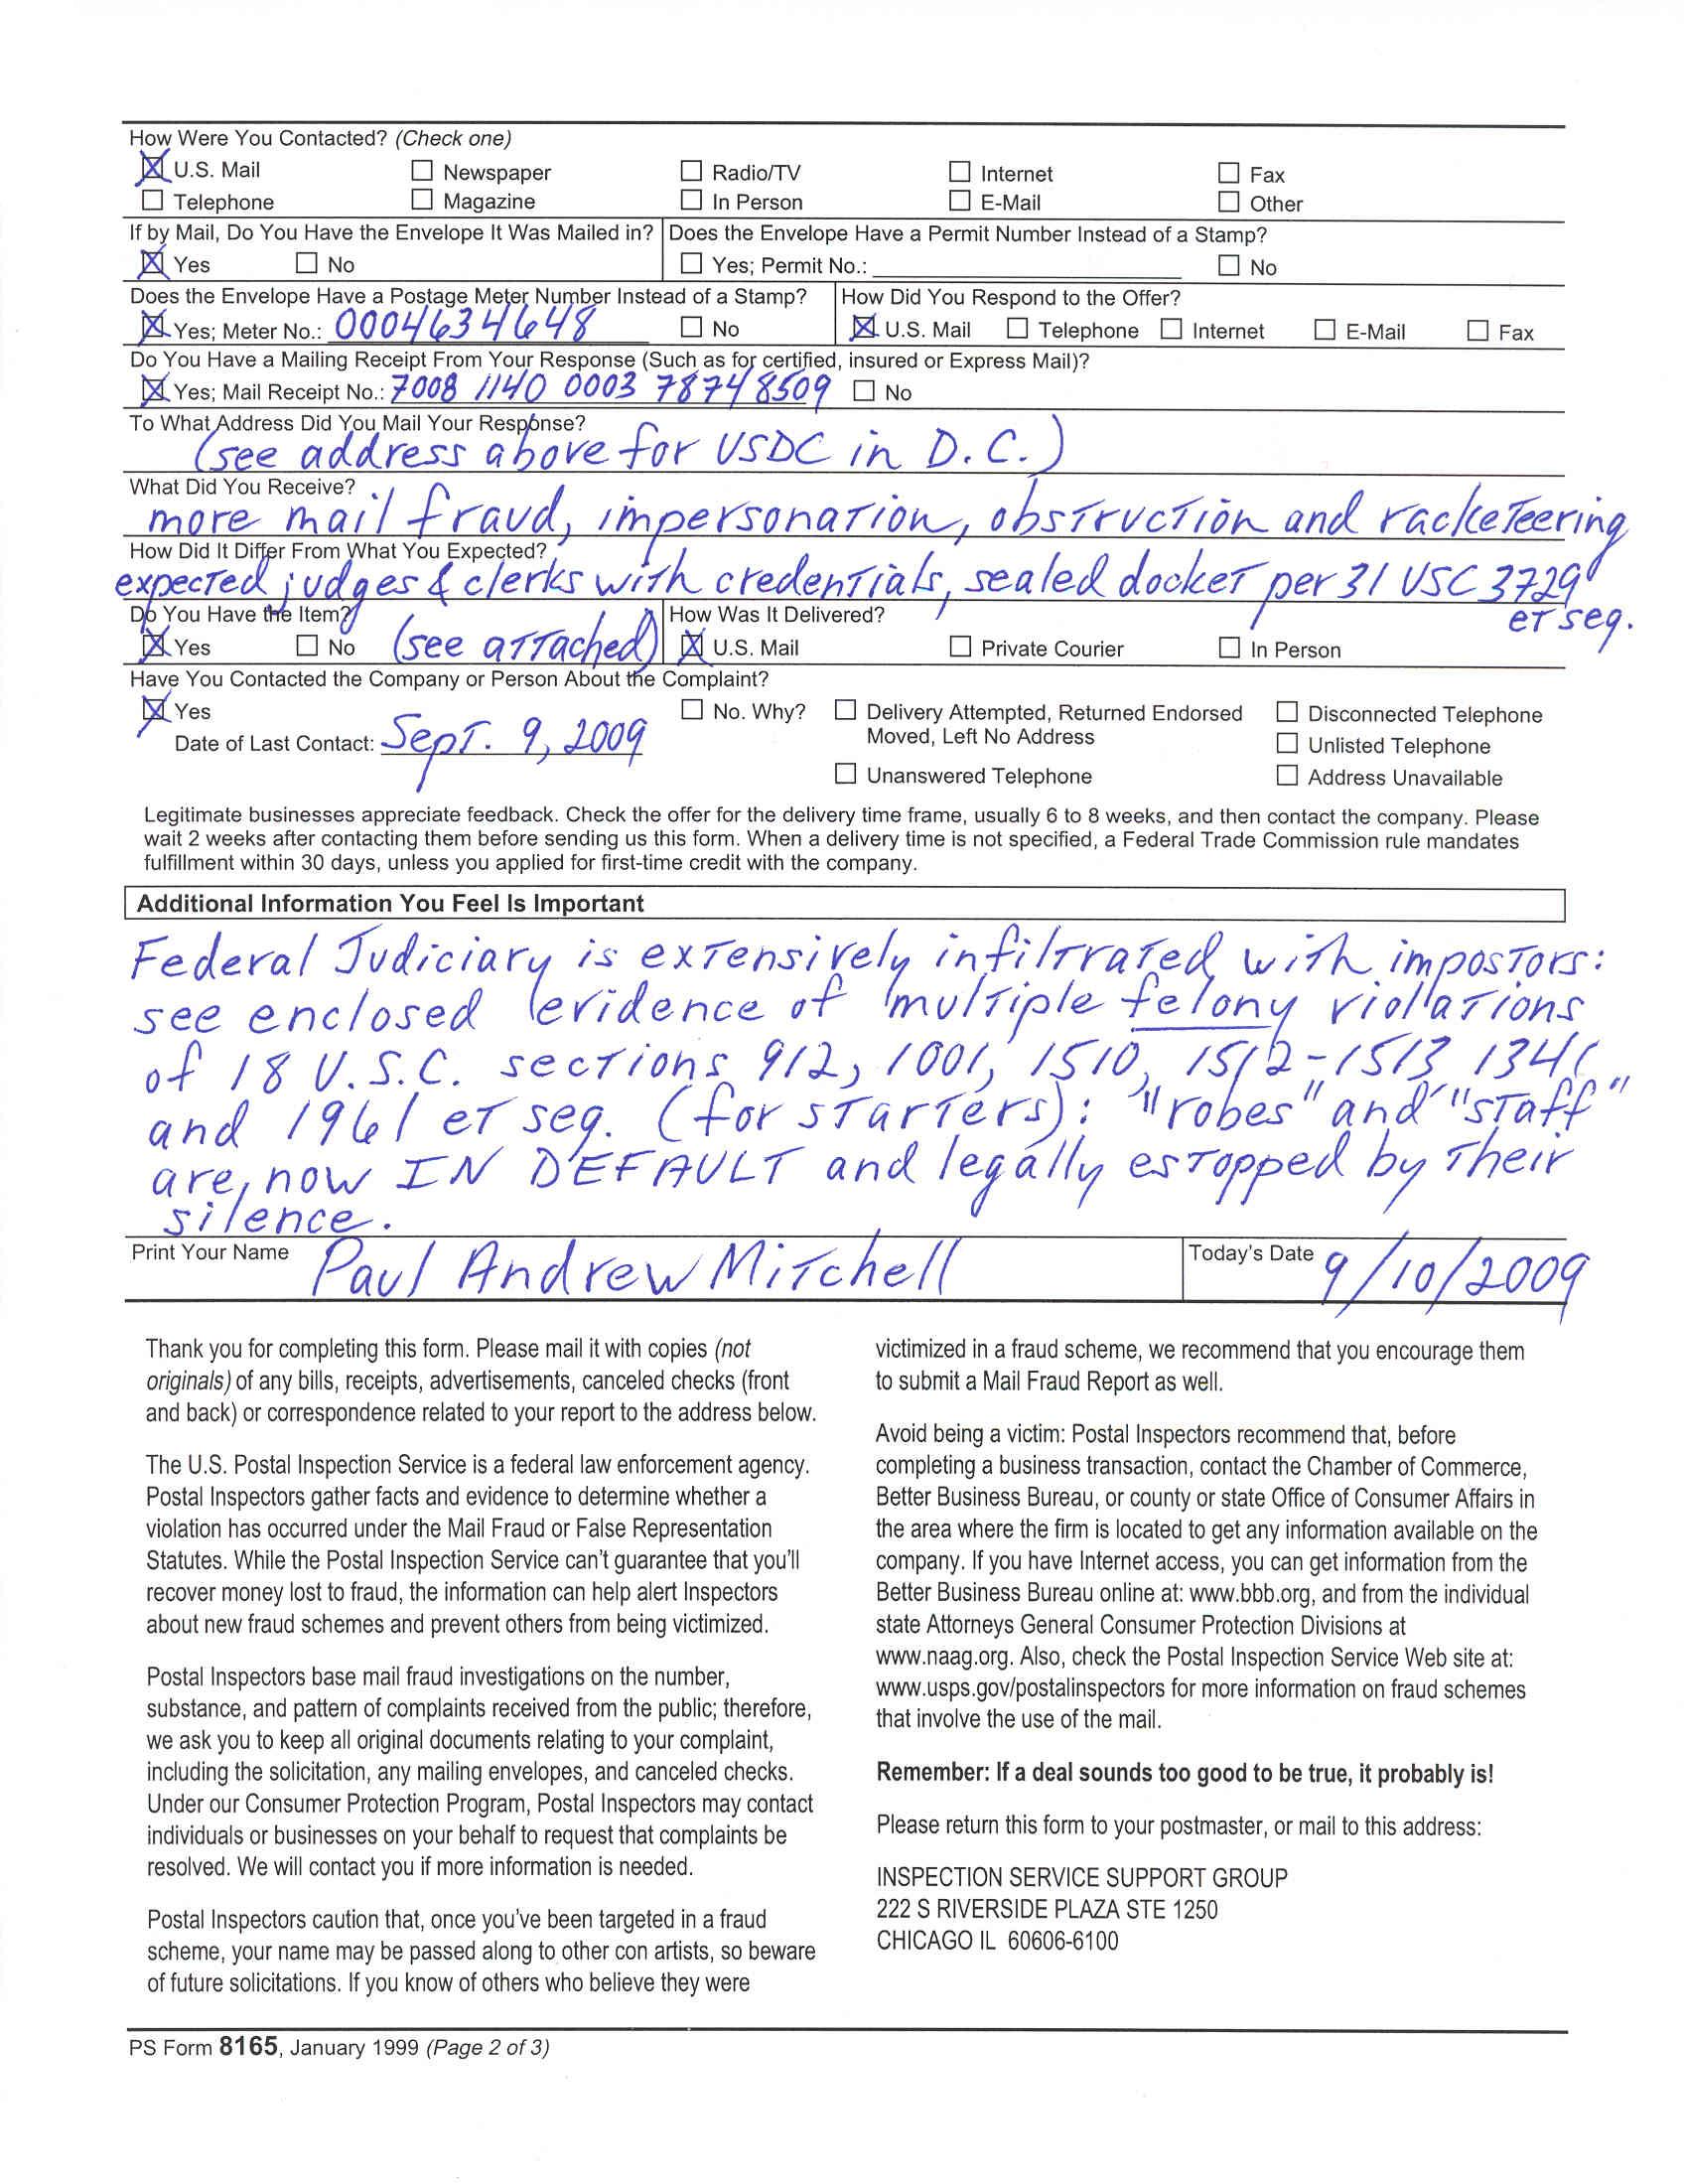 How Were You Contacted? (Check one)
U.S. Mail Newspaper Radio/TV Internet Fax
Telephone Magazine In Person E-Mail Other
If by Mail, Do You Have the Envelope It Was Mailed in? Does the Envelope Have a Permit Number Instead of a Stamp?
Yes No Yes; Permit No.: No
Does the Envelope Have a Postage Meter Number Instead of a Stamp? How Did You Respond to the Offer?
Yes; Meter No.: 0004634648 No U.S. Mail Telephone Internet E-Mail Fax
Do You Have a Mailing Receipt From Your Response (Such as for certified, insured or Express Mail)?
Yes; Mail Receipt No.: 7008 1140 0003 7874 8509 No
To What Address Did You Mail Your Response?
(see address above for USDC in D.C.)
What Did You Receive?
more mail fraud, impersonation, obstruction and racketeering
How Did It Differ From What You Expected?
expected judges & clerks with credentials, sealed docket per 31 USC 3729
et seq.
Do You Have the Item? How Was It Delivered?
Yes No (see attached) U.S. Mail Private Courier In Person
Have You Contacted the Company or Person About the Complaint?
Yes No. Why? Delivery Attempted, Returned Endorsed Disconnected Telephone
Date of Last Contact: Sept. 9, 2009 Moved, Left No Address Unlisted Telephone
Unanswered Telephone Address Unavailable
Legitimate businesses appreciate feedback. Check the offer for the delivery time frame, usually 6 to 8 weeks, and then contact the company. Please
wait 2 weeks after contacting them before sending us this form. When a delivery time is not specified, a Federal Trade Commission rule mandates
fulfillment within 30 days, unless you applied for first-time credit with the company.
Additional Information You Feel Is Important
Federal Judiciary is extensively infiltrated with impostors:
see enclosed evidence of multiple felony violations
of 18 U.S.C. sections 912, 1001, 1510, 1512-1513 1341
and 1961 et seq. (for starters): "robes" and "staff"
are, now IN DEFAULT and legally estopped by their
silence.
Print Your Name Paul Andrew Mitchell Today's Date 9/10/2009
Thank you for completing this form. Please mail it with copies (not
originals) of any bills, receipts, advertisements, canceled checks (front
and back) or correspondence related to your report to the address below.
The U.S. Postal Inspection Service is a federal law enforcement agency.
Postal Inspectors gather facts and evidence to determine whether a
violation has occurred under the Mail Fraud or False Representation
Statutes. While the Postal Inspection Service can't guarantee that you'll
recover money lost to fraud, the information can help alert Inspectors
about new fraud schemes and prevent others from being victimized.
Postal Inspectors base mail fraud investigations on the number,
substance, and pattern of complaints received from the public; therefore,
we ask you to keep all original documents relating to your complaint,
including the solicitation, any mailing envelopes, and canceled checks.
Under our Consumer Protection Program, Postal Inspectors may contact
individuals or businesses on your behalf to request that complaints be
resolved. We will contact you if more information is needed.
Postal Inspectors caution that, once you've been targeted in a fraud
scheme, your name may be passed along to other con artists, so beware
of future solicitations. If you know of others who believe they were
victimized in a fraud scheme, we recommend that you encourage them
to submit a Mail Fraud Report as well.
Avoid being a victim: Postal Inspectors recommend that, before
completing a business transaction, contact the Chamber of Commerce,
Better Business Bureau, or county or state Office of Consumer Affairs in
the area where the firm is located to get any information available on the
company. If you have Internet access, you can get information from the
Better Business Bureau online at: www.bbb.org, and from the individual
state Attorneys General Consumer Protection Divisions at
www.naag.org. Also, check the Postal Inspection Service Web site at:
www.usps.gov/postalinspectors for more information on fraud schemes
that involve the use of the mail.
Remember: If a deal sounds too good to be true, it probably is!
Please return this form to your postmaster, or mail to this address:
INSPECTION SERVICE SUPPORT GROUP
222 S RIVERSIDE PLAZA STE 1250
CHICAGO IL 60606-6100
PS Form 8165, January 1999 (Page 2 of 3)